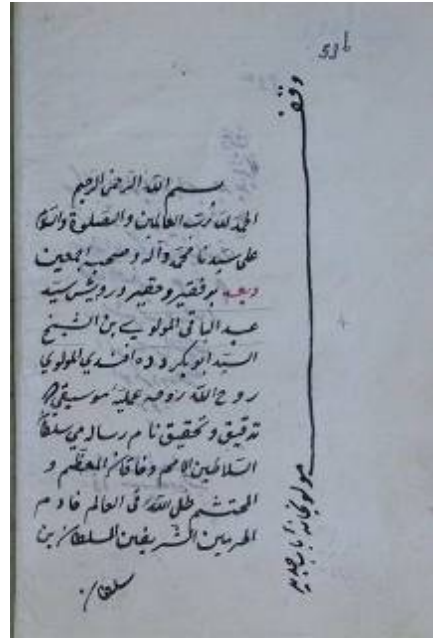 53b
وقف
بسم الله الرحمن الرحيم
الحمد لله رب العالمين والصلوة والسلام
على سيدنا محمد وآله وصحبه اجمعين
وبعد بو فقير وحقير درويش سيد
عبد الباقى المولوي بن الشيخ
السيد ابو بكر دده افندي المولوي
روح الله روحه عمليۀ موسيقى
تدقيق وتحقيق نام رساله مى سلطان
السلاطين الامم وخاقان المعظم و
المحتشم ظل الله فى العالم خادم
الحرمين الشريفين السلطان بن
سلطان
مولويخانه باب جديد